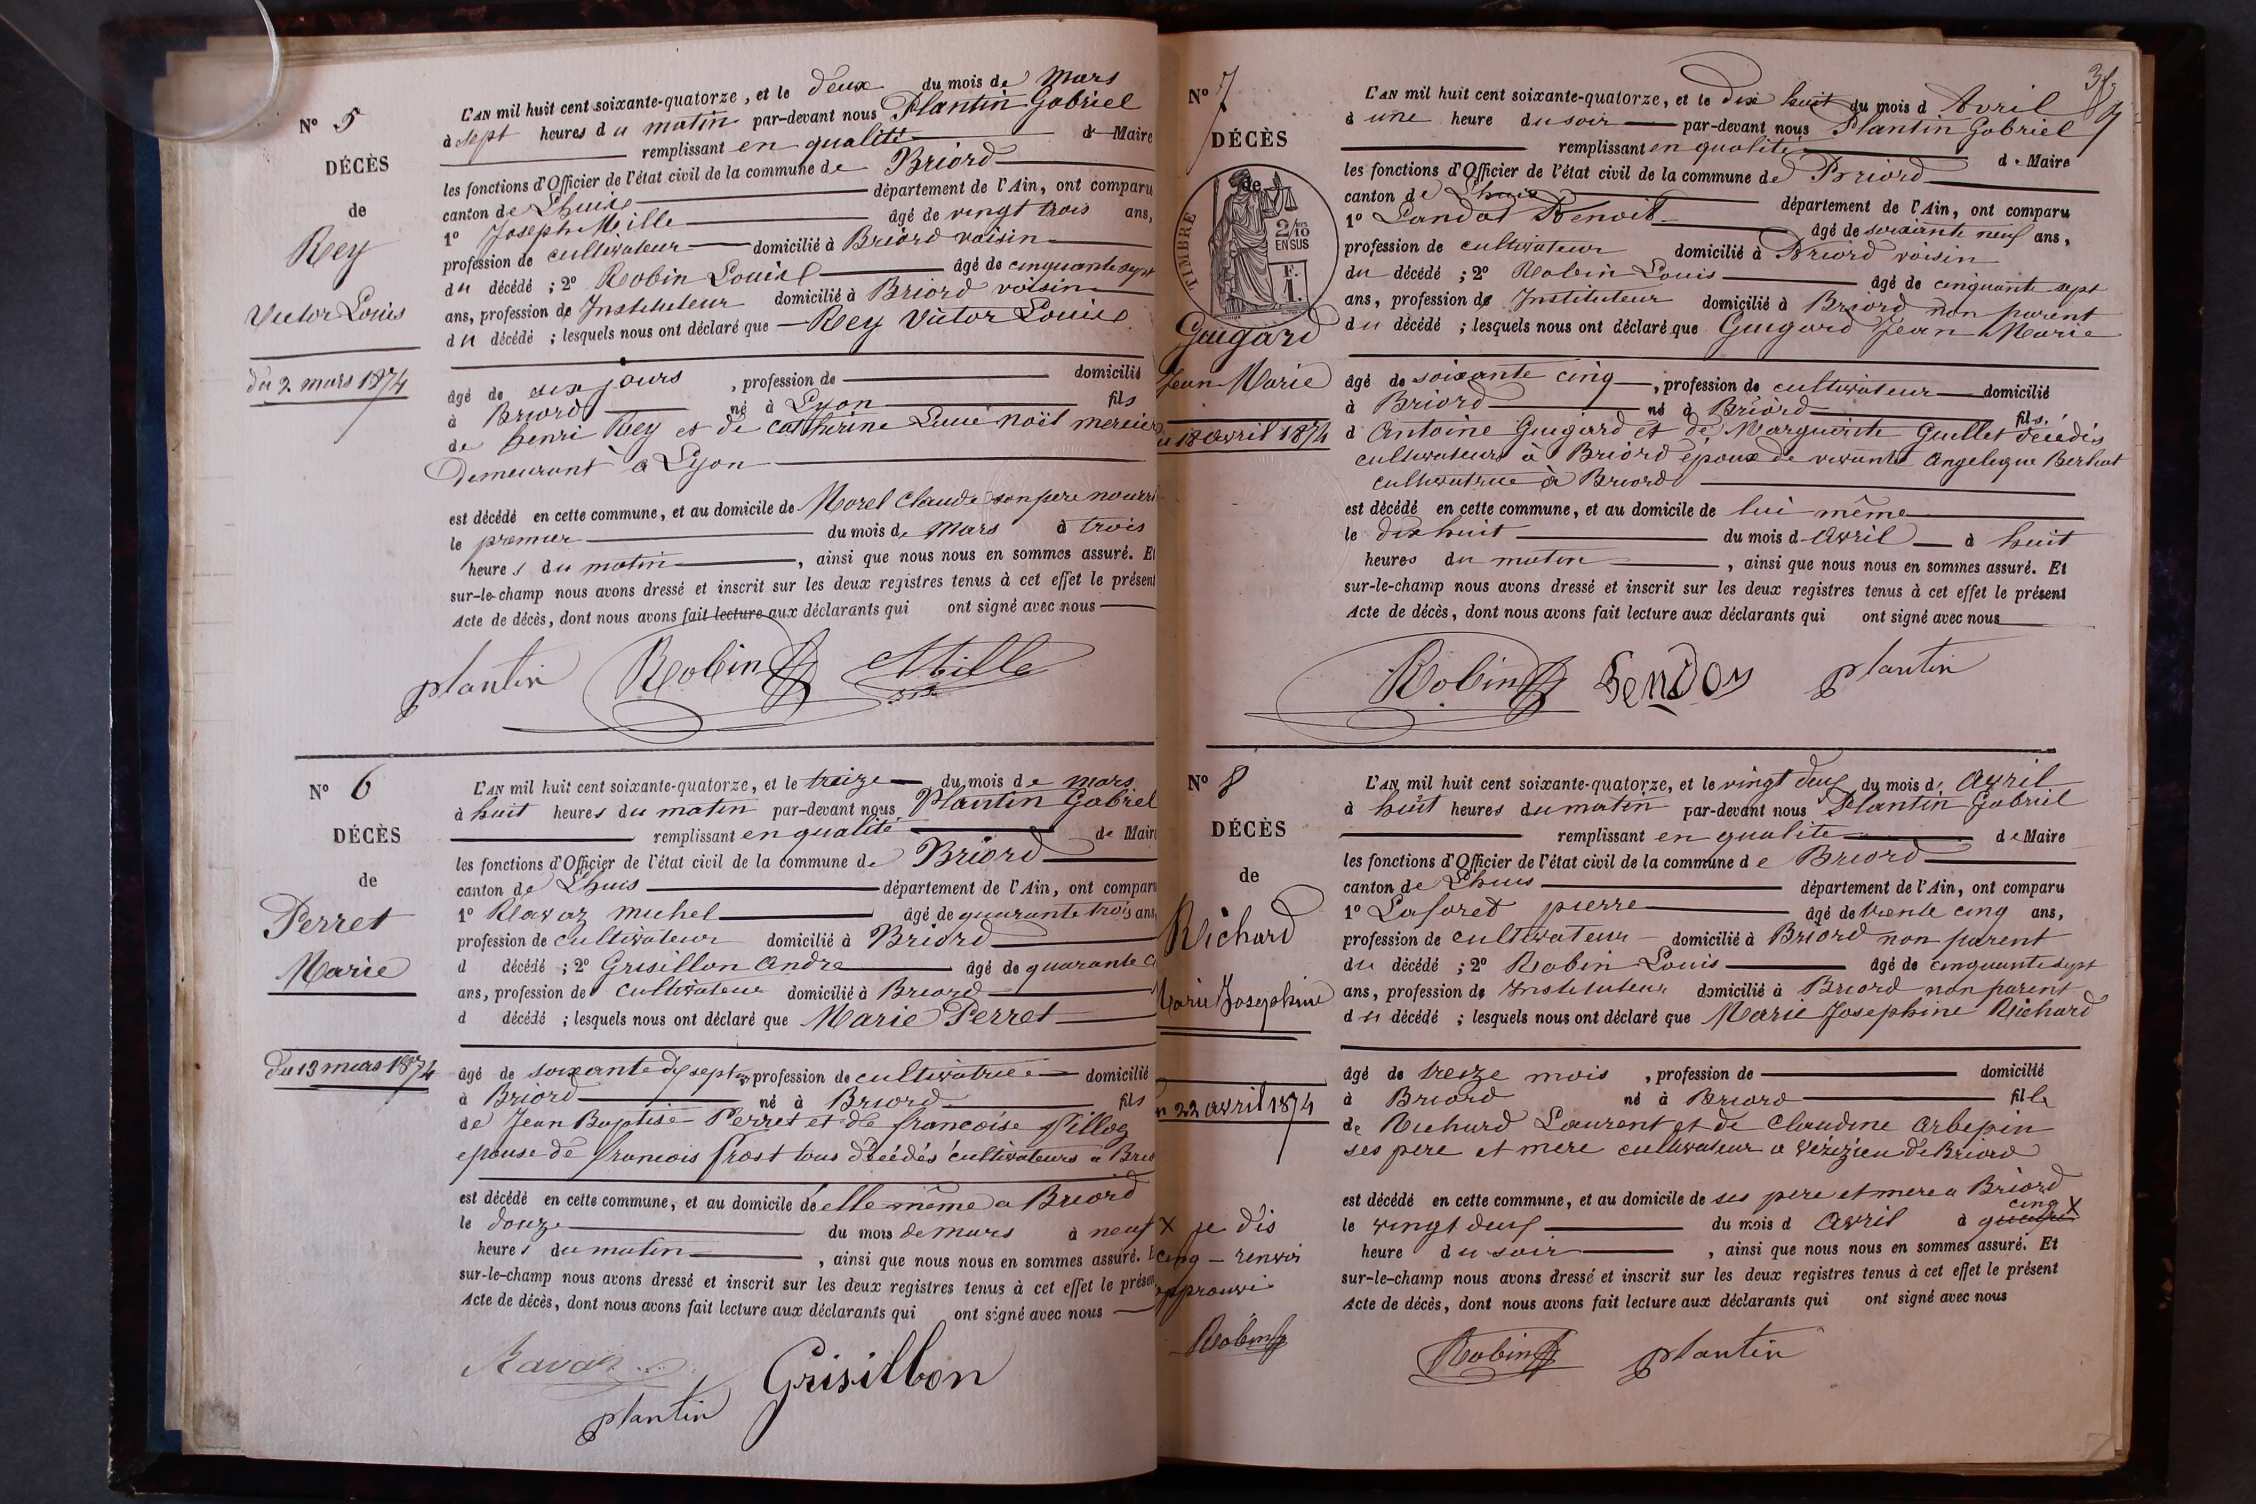 Nº 5
DÉCÈS
de
Rey
Victor Louis
du 2 mars 1874
L'AN mil huit cent soixante-quatorze, et le deux du mois de Mars
à sept heures du matin par-devant nous Plantin Gabriel
remplissant en qualité de Maire
les fonctions d'Officier de l'état civil de la commune de Briord
canton de Lhuis département de l'Ain, ont comparu
1º Joseph Mille âgé de vingt trois ans,
profession de cultivateur domicilié à Briord voisin
du décédé ; 2º Robin Louis âgé de cinquante sept
ans, profession de Instituteur domicilié à Briord voisin
du décédé ; lesquels nous ont déclaré que Rey Victor Louis
âgé de six jours , profession de domicilié
à Briord né à Lyon fils
de henri Rey et de Catherine Lucie Noël mercier
Demeurant à Lyon
est décédé en cette commune, et au domicile de Morel Claude son père nourri
le premier du mois de Mars à trois
heures du matin , ainsi que nous nous en sommes assuré. Et
sur-le-champ nous avons dressé et inscrit sur les deux registres tenus à cet effet le présent
Acte de décès, dont nous avons fait lecture aux déclarants qui ont signé avec nous
plantin Robin Mille
Nº 6
DÉCÈS
de
Perret
Marie
du 13 mars 1874
L'AN mil huit cent soixante-quatorze, et le treize du mois de mars
à huit heures du matin par-devant nous Plantin Gabriel
remplissant en qualité de Maire
les fonctions d'Officier de l'état civil de la commune de Briord
canton de Lhuis département de l'Ain, ont comparu
1º Ravaz michel âgé de quarante trois ans,
profession de cultivateur domicilié à Briord
d décédé ; 2º Grisillon Andre âgé de quarante
ans, profession de cultivateur domicilié à Briord
d décédé ; lesquels nous ont déclaré que Marie Perret
âgé de soixante dix sept ans profession de cultivatrice domicilié
à Briord né à Briord fils
de Jean Baptiste Perret et de francoise
epouse de francois frost tous décédés cultivateurs a Brio
est décédé en cette commune, et au domicile de elle même a Briord
le douze du mois de mars à neuf
heures du matin , ainsi que nous nous en sommes assuré. E
sur-le-champ nous avons dressé et inscrit sur les deux registres tenus à cet effet le présen
Acte de décès, dont nous avons fait lecture aux déclarants qui ont signé avec nous
Ravaz Grisillon
plantin
Nº 7
DÉCÈS
de
TIMBRE
2/10
EN SUS
F.
1.
Guigard
Jean Marie
18 avril 1874
L'AN mil huit cent soixante-quatorze, et le dix huit du mois d Avril
à une heure du soir par-devant nous Plantin Gabriel
remplissant en qualité de Maire
les fonctions d'Officier de l'état civil de la commune de Briord
canton de Lhuis département de l'Ain, ont comparu
1º Landot Benoit âgé de soixante neuf ans,
profession de cultivateur domicilié à Briord voisin
du décédé ; 2º Robin Louis âgé de cinquante sept
ans, profession de Instituteur domicilié à Briord non parent
du décédé ; lesquels nous ont déclaré que Guigard Jean Marie
âgé de soixante cinq , profession de cultivateur domicilié
à Briord né à Briord fils
d Antoine Guigard et de Marguerite Guillet décédés
cultivateurs à Briord époux de vivante Angelique Berliat
cultivatrice à Briord
est décédé en cette commune, et au domicile de lui même
le dix huit du mois d avril à huit
heures du matin , ainsi que nous nous en sommes assuré. Et
sur-le-champ nous avons dressé et inscrit sur les deux registres tenus à cet effet le présent
Acte de décès, dont nous avons fait lecture aux déclarants qui ont signé avec nous
Robin plantin
Nº 8
DÉCÈS
de
Richard
Marie Josephine
22 avril 1874
X je dis
cinq - renvoi
approuvé
Robin
L'AN mil huit cent soixante-quatorze, et le vingt deux du mois d'Avril
à huit heures du matin par-devant nous Plantin Gabriel
remplissant en qualité de Maire
les fonctions d'Officier de l'état civil de la commune de Briord
canton de Lhuis département de l'Ain, ont comparu
1º Laforet pierre âgé de trente cinq ans,
profession de cultivateur domicilié à Briord non parent
du décédé ; 2º Robin Louis âgé de cinquante sept
ans, profession de Instituteur domicilié à Briord non parent
du décédé ; lesquels nous ont déclaré que Marie Josephine Richard
âgé de treize mois , profession de domicilié
à Briord né à Briord fille
de Richard Laurent et de Claudine Arbepin
ses pere et mere cultivateur a Vérizieu de Briord
est décédé en cette commune, et au domicile de ses pere et mere a Briord
cinq X
le vingt deux du mois d Avril à
heure du soir , ainsi que nous nous en sommes assuré. Et
sur-le-champ nous avons dressé et inscrit sur les deux registres tenus à cet effet le présent
Acte de décès, dont nous avons fait lecture aux déclarants qui ont signé avec nous
Robin plantin